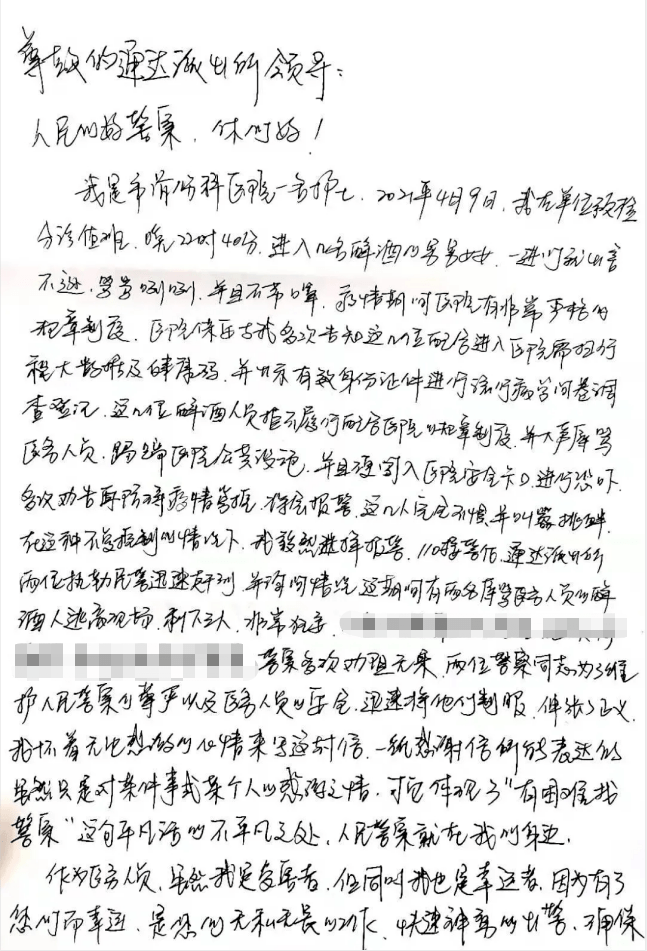 尊敬的通达派出所领导：
人民的好警察，你们好！
我是市骨伤科医院一名护士，2021年4月9日，我在单位预检
分诊值班，晚22时40分，进入几名醉酒的男男女女，一进门就出言
不逊，骂骂咧咧，并且不带口罩，疫情期间医院有非常严格的
规章制度，医院保安与我多次告知这几位配合进入医院需扫行
程大数据及健康码，并出示有效身份证件进行流行病学问卷调
查登记，这几位醉酒人员拒不履行配合医院的规章制度，并大声辱骂
医务人员，踢踹医院公共设施，并且硬闯入医院安全卡口，进行恐吓，
多次劝告再防碍疫情管控，将会报警，这几人完全不惧，并叫嚣挑衅，
在这种不受控制的情况下，我毅然选择报警，110接警后，通达派出所
两位执勤民警迅速赶到，并询问情况，这期间有两名辱骂医务人员的醉
酒人逃离现场，剩下三人，非常狂妄，
警察多次劝阻无果，两位警察同志为了维
护人民警察的尊严以及医务人员的安全，迅速将他们制服，伸张了正义，
我怀着无比感激的心情来写这封信，一纸感谢信所能表达的
虽然只是对某件事或某个人的感激之情，可它体现了“有困难找
警察”这句平凡话的不平凡之处，人民警察就在我们身边。
作为医务人员，虽然我是受害者，但同时我也是幸运者，因为有了
您们而幸运，是您们无私无畏的工作，快速神勇的出警，才确保